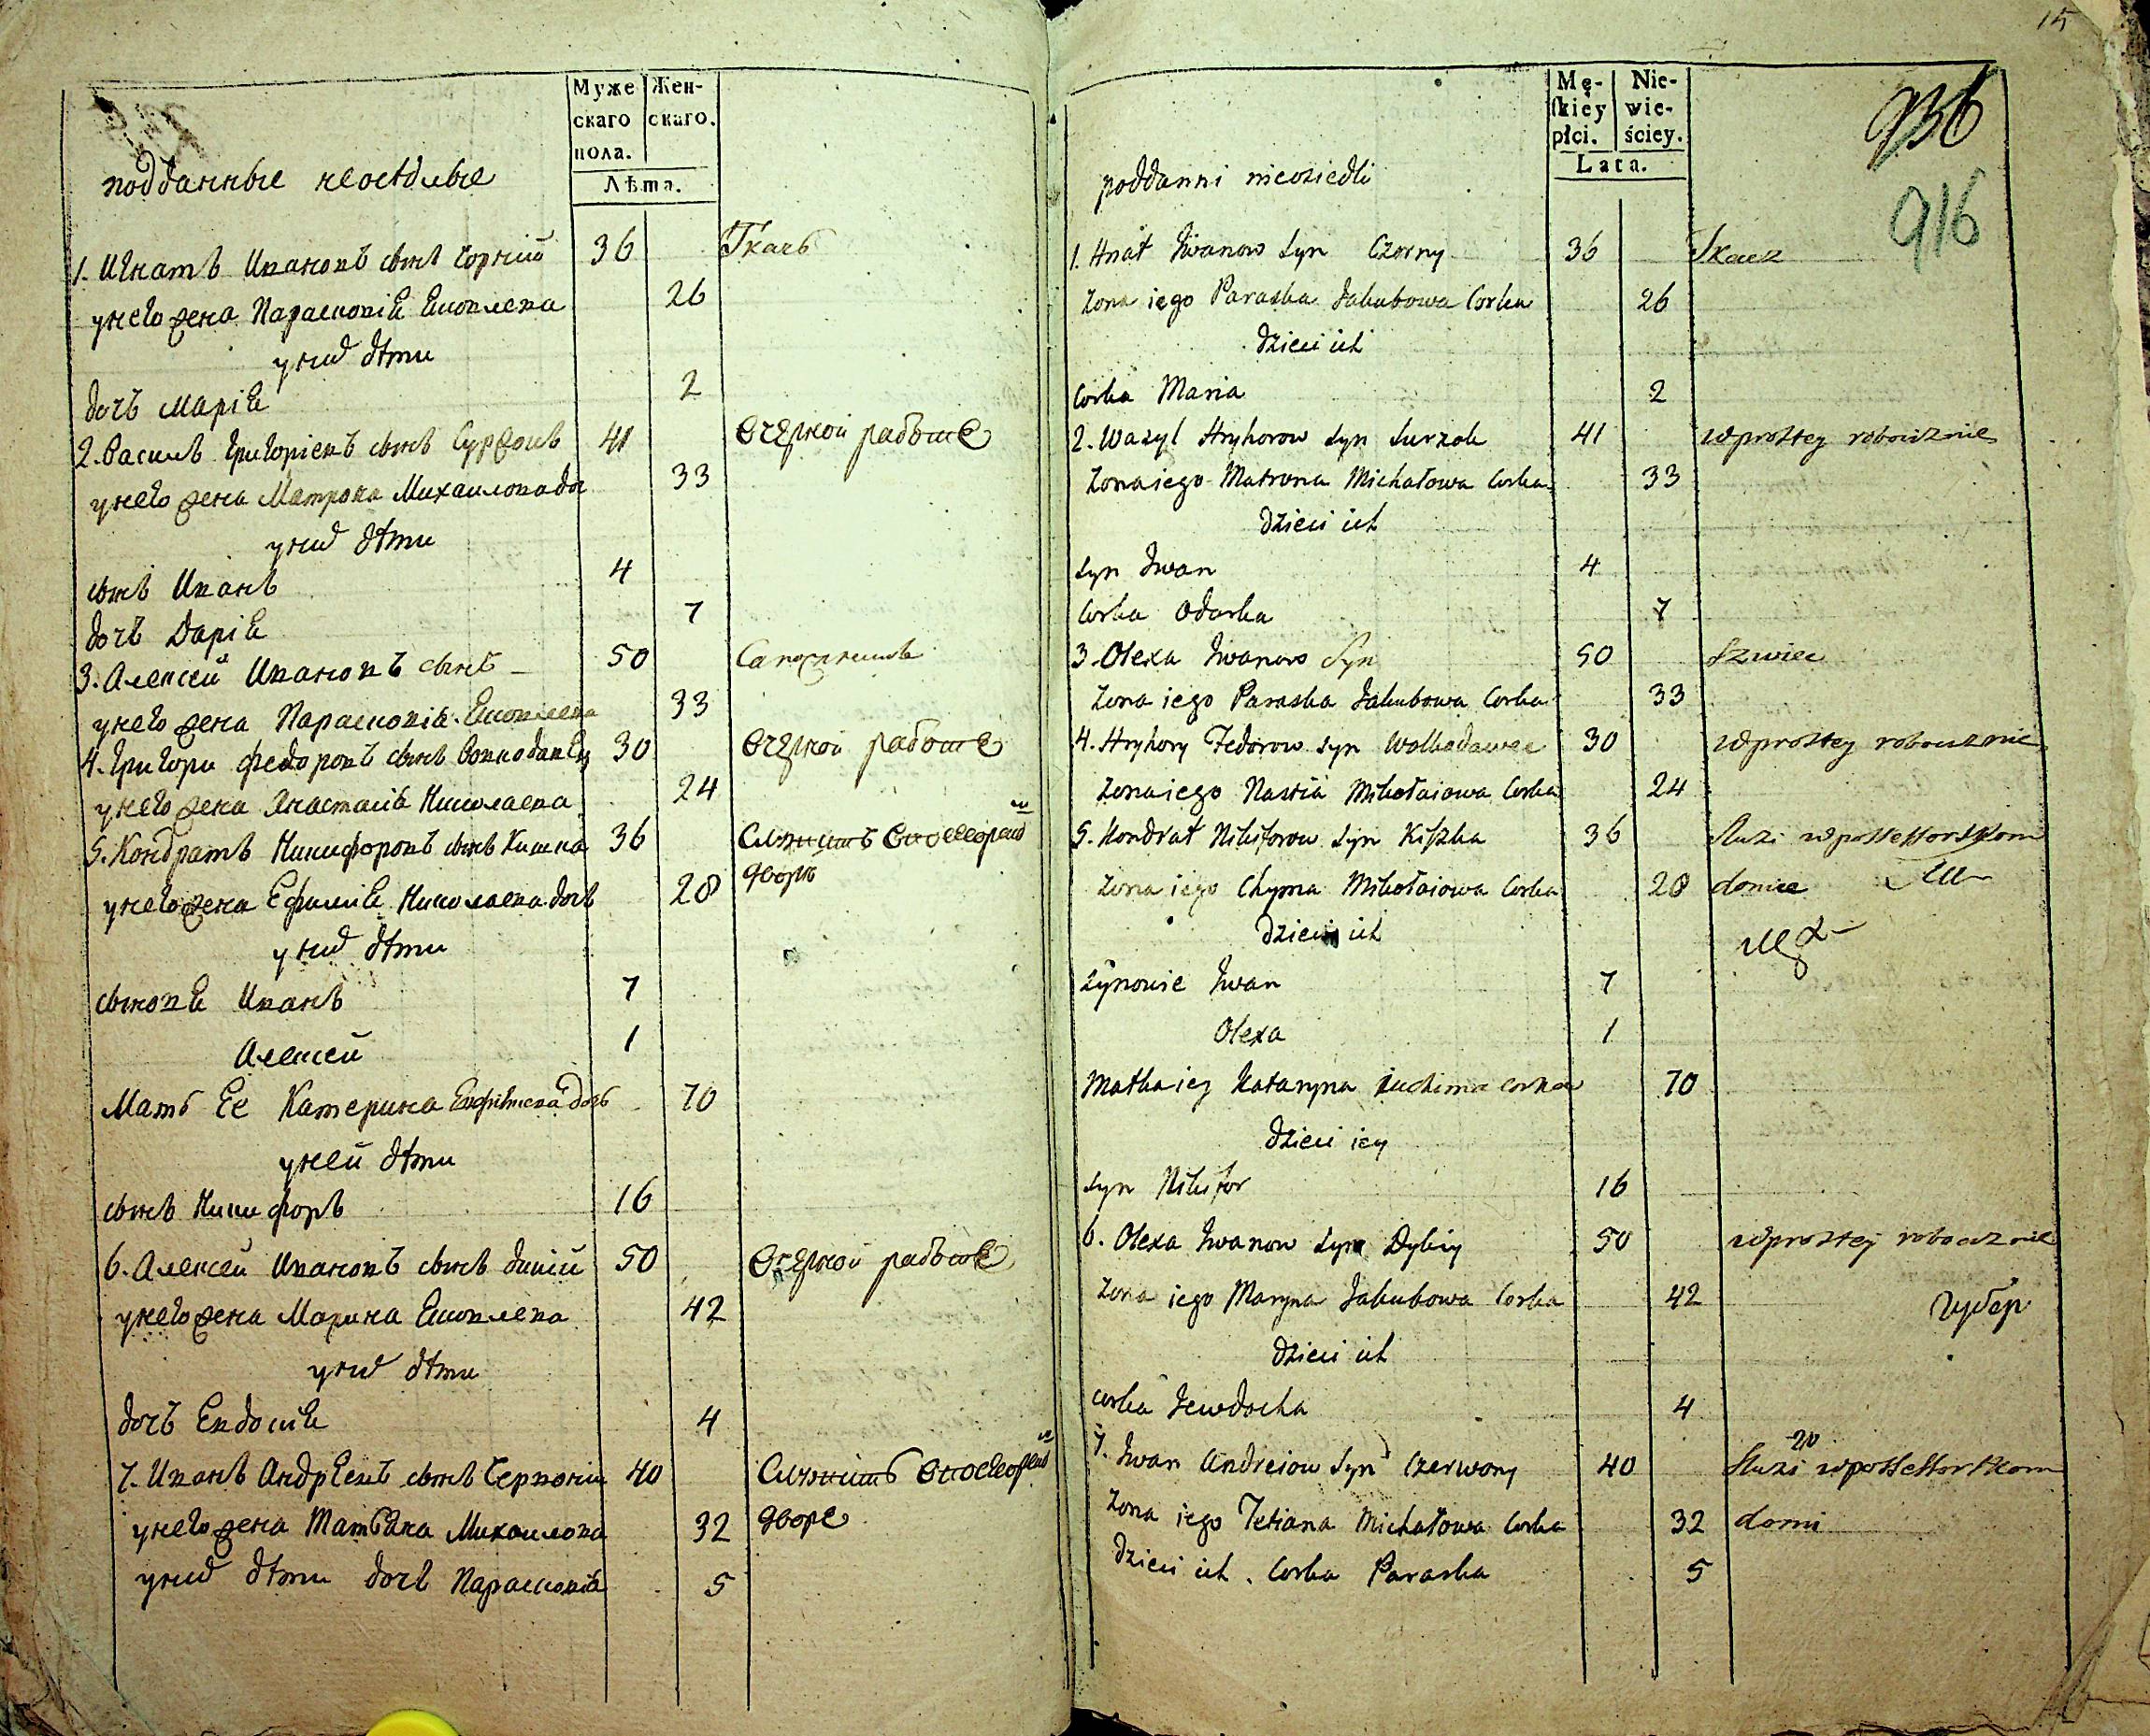 Муже
скаго
пола.
Жен-
скаго.
Лѣта.
подданные неоседлые
1. Игнатъ Ивановъ сынъ Чорний 36 Ткачь
у него жена Парасковіѣ Яковлева 26
у них дѣти
дочъ Маріѣ 2
2. Василь Григоріевъ сынъ Суржокъ 41 в черной работе
у него жена Матрона Михаилова до 33
у них дѣти
сынъ Иванъ 4
дочъ Даріѣ 7
3. Алексей Ивановъ сынъ 50 Сапожникъ
у него жена Парасковіѣ Яковлева 33
4. Григори Федоровъ сынъ Вовкодавец 30 в черной работе
у него жена Анастасіѣ Николаева 24
5. Кондратъ Никифоровъ сынъ Кишка 36 Служитъ в посесорском
дворе
у него жена Ефиміѣ Николаева дочъ 28
у них дѣти
сыновѣ Иванъ 7
Алексей 1
Мать Ее Катерина дочь 70
у ней дѣти
сынъ Никифоръ 16
6. Алексей Ивановъ сынъ дикий 50 в черной работе
у него жена Марина Яковлева 42
у них дѣти
дочъ Евдокиѣ 4
7. Иванъ Андрѣевъ сынъ Червоний 40 Служить в посесорском
у него жена Татьяна Михаилова 32 дворе
у них дѣти дочъ Парасковіѣ 5
15
Mę-
skiéy
płci.
Nie-
wie-
ściey.
Lata.
936
916
poddanni nieosiedli
1. Hnat Iwanow Syn Czorny 36 Tkacz
Zona iego Paraska Jakubowa Corka 26
dzieci ich
Corka Maria 2
2. Wasyl Hryhorow Syn Surzok 41 w prostey roboczznie
Zona iego Matrona Michałowa Corka 33
dzieci ich
Syn Iwan 4
Corka Odarka 7
3. Olexa Iwanow Syn 50 Szwiec
Zona iego Paraska Jakubowa Corka 33
4. Hryhory Fedorow Syn Wolkodawec 30 w prostey roboczznie
Zona iego Nastia Mikołaiowa Corka 24
5. Kondrat Nikiforow Syn Kiszka 36 Służi w possessorskom
Zona iego Chyma Mikołaiowa Corka 28 domie
dzieci ich
Synowie Iwan 7
Olexa 1
Matka iey Kataryna Corka 70
dzieci iey
Syn Nikifor 16
6. Olexa Iwanow Syn Dykiy 50 w prostey roboczznie
Zona iego Maryna Jakubowa Corka 42
Губер
dzieci ich
Corka Jewdocha 4
7. Iwan Andreiow Syn Czerwony 40 Służi w possessorskom
Zona iego Tetiana Michałowa Corka 32 domi
dzieci ich. Corka Paraska 5